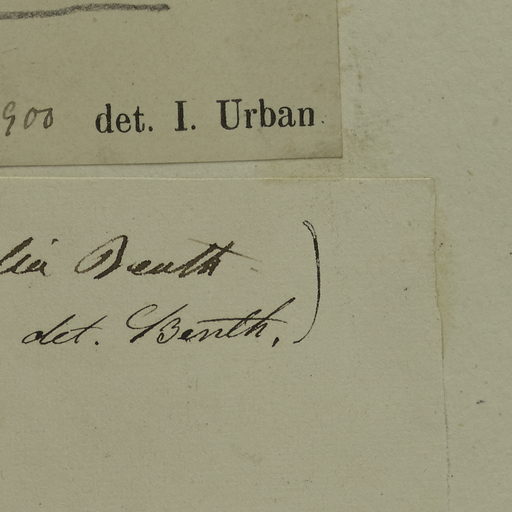 900 det. I. Urban
lia Benth
det. Benth.